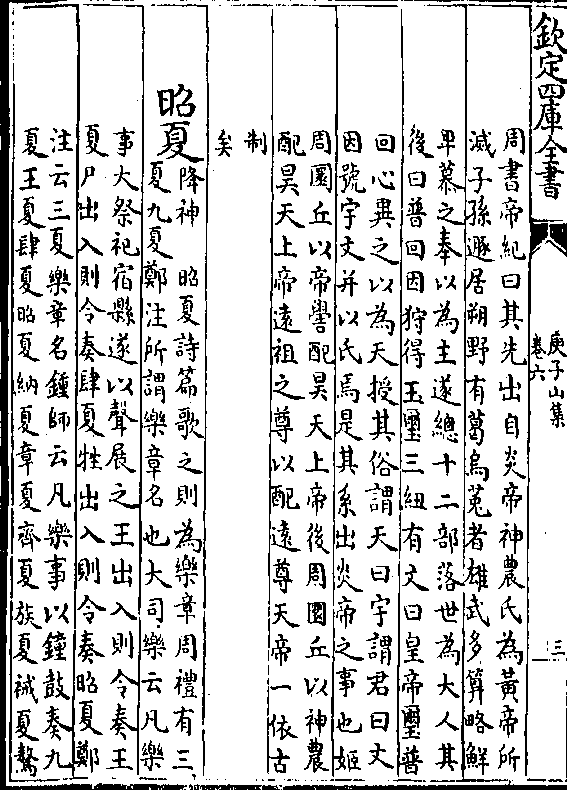 欽定四庫全書
庾子山集
卷六
三
周書帝紀曰其先出自炎帝神農氏為黃帝所
滅子孫遯居朔野有葛烏菟者雄武多算略鮮
卑慕之奉以為主遂總十二部落世為大人其
後曰普回因狩得玉璽三紐有文曰皇帝璽普
回心異之以為天授其俗謂天曰宇謂君曰文
因號宇文并以氏焉是其系出炎帝之事也姬
周圜丘以帝嚳配昊天上帝後周圜丘以神農
配昊天上帝遠祖之尊以配遠尊天帝一依古
制矣
昭夏
降神 昭夏詩篇歌之則為樂章周禮有三
夏九夏鄭注所謂樂章名也大司樂云凡樂
事大祭祀宿縣遂以聲展之王出入則令奏王
夏尸出入則令奏肆夏牲出入則令奏昭夏鄭
注云三夏樂章名鍾師云凡樂事以鐘鼓奏九
夏王夏肆夏昭夏納夏章夏齊夏族夏祴夏驁